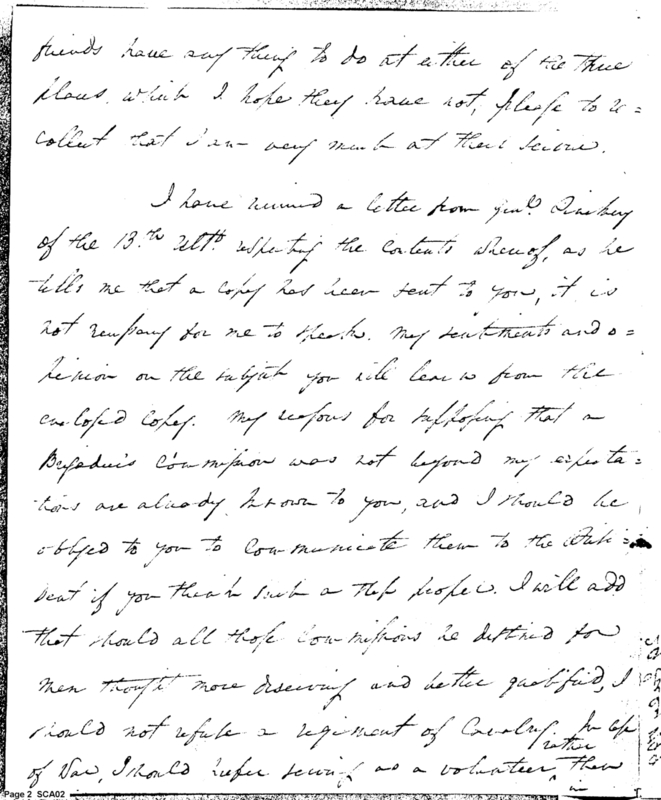 friends have any thing to do at either of the three
places, which I hope they have not, please to re=
collect that I am very much at their service.
I have received a letter from Genl. Pinckney
of the 13.th Ulto. respecting the contents whereof, as he
tells me that a copy has been sent to you, it is
not necessary for me to speak. My sentiments and o=
pinion on the subject you will learn from the
enclosed copy. My reasons for supposing that a
Brigadier's Commission was not beyond my expecta=
tions are already known to you, and I should be
obliged to you to communicate them to the Presi=
dent if you think such a step proper. I will add
that should all those Commissions be destined for
men thought more deserving and better qualified, I
should not refuse a regiment of Cavalry. In case
rather
of War, I should prefer serving as a volunteer, than
in
Page 2 SCA02